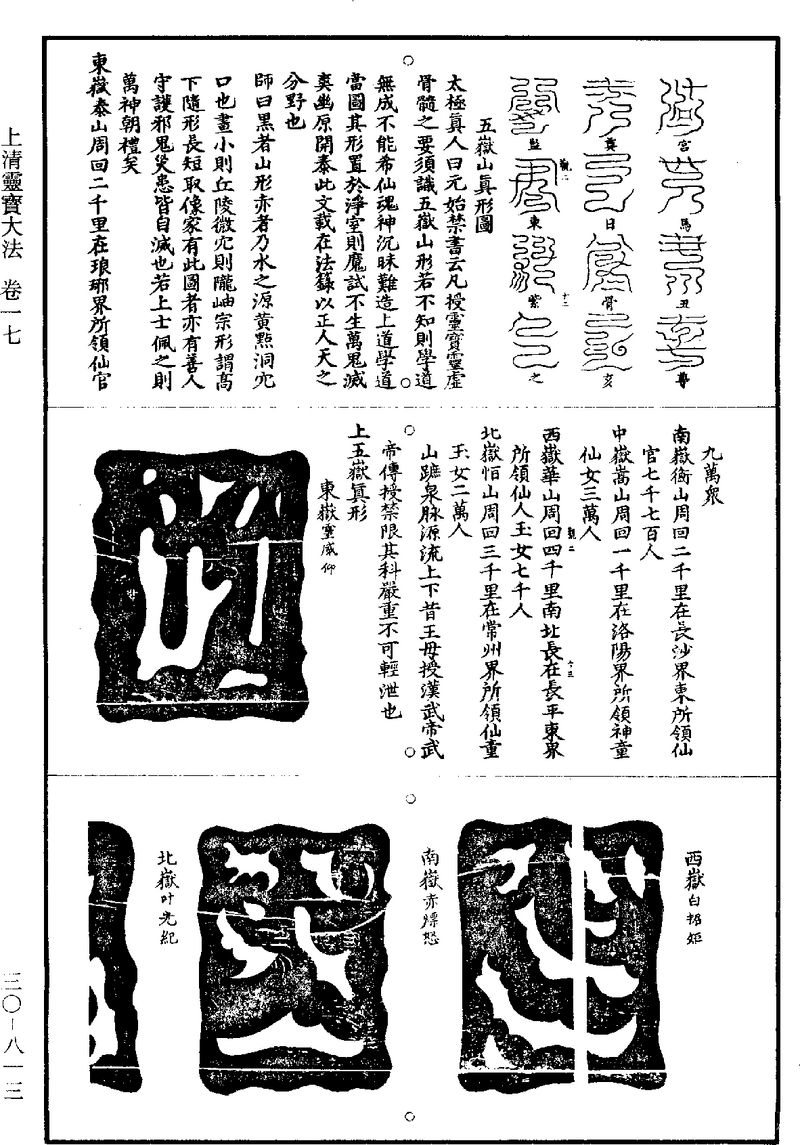 上清靈寶大法　卷一七
宮 馬 丑 尊
真 日 骨 亥
監 東 紫 之
五嶽山眞形圖
太極眞人曰元始禁書云凡授靈寶靈虛
骨髓之要須識五嶽山形若不知則學道
無成不能希仙魂神沉昧難造上道學道
當圖其形置於淨室則魔試不生萬鬼滅
爽幽原開泰此文載在法籙以正人天之
分野也
師曰黑者山形赤者乃水之源黃點洞穴
口也畫小則丘陵微穴則隴岫宗形謂高
下隨形長短取像家有此圖者亦有善人
守護邪鬼災患皆自滅也若上士佩之則
萬神朝禮矣
東嶽泰山周回二千里在琅琊界所領仙官
九萬衆
南嶽衡山周回二千里在長沙界東所領仙
官七千七百人
中嶽嵩山周回一千里在洛陽界所領神童
仙女三萬人
西嶽華山周回四千里南北長在長平東界
所領仙人玉女七千人
北嶽恒山周回三千里在常州界所領仙童
玉女二萬人
山蹠泉脉源流上下昔王母授漢武帝武
帝傳授禁限其科嚴重不可輕泄也
上五嶽眞形
東嶽靈威仰
西嶽白招矩
南嶽赤熛怒
北嶽叶光紀
三〇－八一三